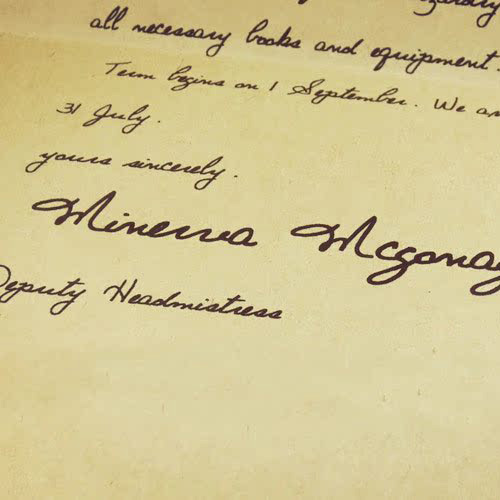 all necessary books and equipment.
Term begins on 1 September. We
31 July.
yours sincerely.
Minerva Mcgonag
Deputy Headmistress